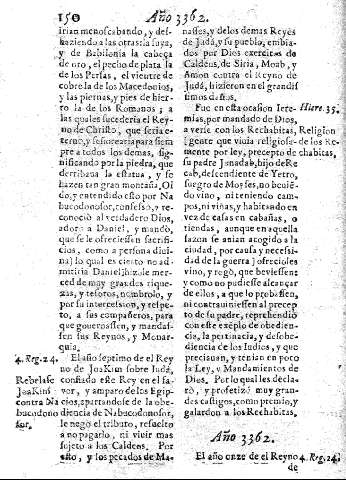 150
Año 3362.
irian menoscabando, y des-
haziendo a las otras: la suya,
y de Babilonia la cabeça
de oro, el pecho de plata la
de los Persas, el vientre de
cobre la de los Macedonios,
y las piernas, y pies de hier-
ro la de los Romanos; a
las quales sucederia el Rey-
no de Christo, que seria e-
terno, y se señorearia para siem
pre a todos los demas, sig-
nificando por la piedra, que
derribaua la estatua, y se
hazen tan gran montaña, Oi
do, y entendido esto por Na
bucodonosor, confeso, y re-
conociò al verdadero Dios,
adorò a Daniel, y mandò,
que se le ofreciessen sacrifi-
cios, como a persona diui-
na; lo qual es cierto no ad-
mitiria Daniel: hizole mer-
ced de muy grandes rique-
zas, y tesoros, nombrolo, y
por su intercession, y respe-
to, a sus compañeros, para
que gouernassen, y mandas-
sen sus Reynos, y Monar-
quia.
4. Reg. 24.
El año septimo de el Rey
no de JoaKim sobre Judà,
Rebelase
JoaKim
contra Na
bucodono
sor.
confiado este Rey en el fa-
vor, y amparo de los Egip-
cios, apartandose de la obe-
diencia de Nabucodonosor,
le negò el tributo, resuelto
a no pagarlo, ni vivir mas
sujeto a los Caldeos. Por
esto, y los pecados de Ma-
nasses, y de los demas Reyes
de Judá, y su pueblo, embia-
dos por Dios exercitos de
Caldeos, de Siria, Moab, y
Amon contra el Reyno de
Judà, hizieron en el grandis
simos daños.
Fue en esta ocasion Iere-
Hiere. 35.
mias, por mandado de Dios,
a verse con los Rechabitas,
Religion
de los Re
chabitas.
gente que viuia religiosa-
mente por ley, precepto de
su padre Jonadab, hijo de Re
cab, descendiente de Yetro,
suegro de Moyses, no beuiē-
do vino, ni teniendo cam-
pos, ni viñas, y habitando en
vez de casas en cabañas, o
tiendas, aunque en aquella
sazon se auian acogido a la
ciudad, por causa y necesi-
dad de la guerra) ofrecioles
vino, y rogò, que beuiessen
y como no pudiesse alcançar
de ellos, a que lo probassen,
ni contrauiniessen al precep
to de su padre, reprehendiò
con este exēplo de obedien-
cia, la pertinacia, y desobe-
diencia de los Iudios, y que
precisauan, y tenian en poco
la Ley, y Mandamientos de
Dios. Por lo qual les decla-
rò, y profetizò muy gran-
des castigos, como premio, y
galardon a los Rechabitas.
Año 3362.
El año onze de el Reyno
4. Reg. 24.
de